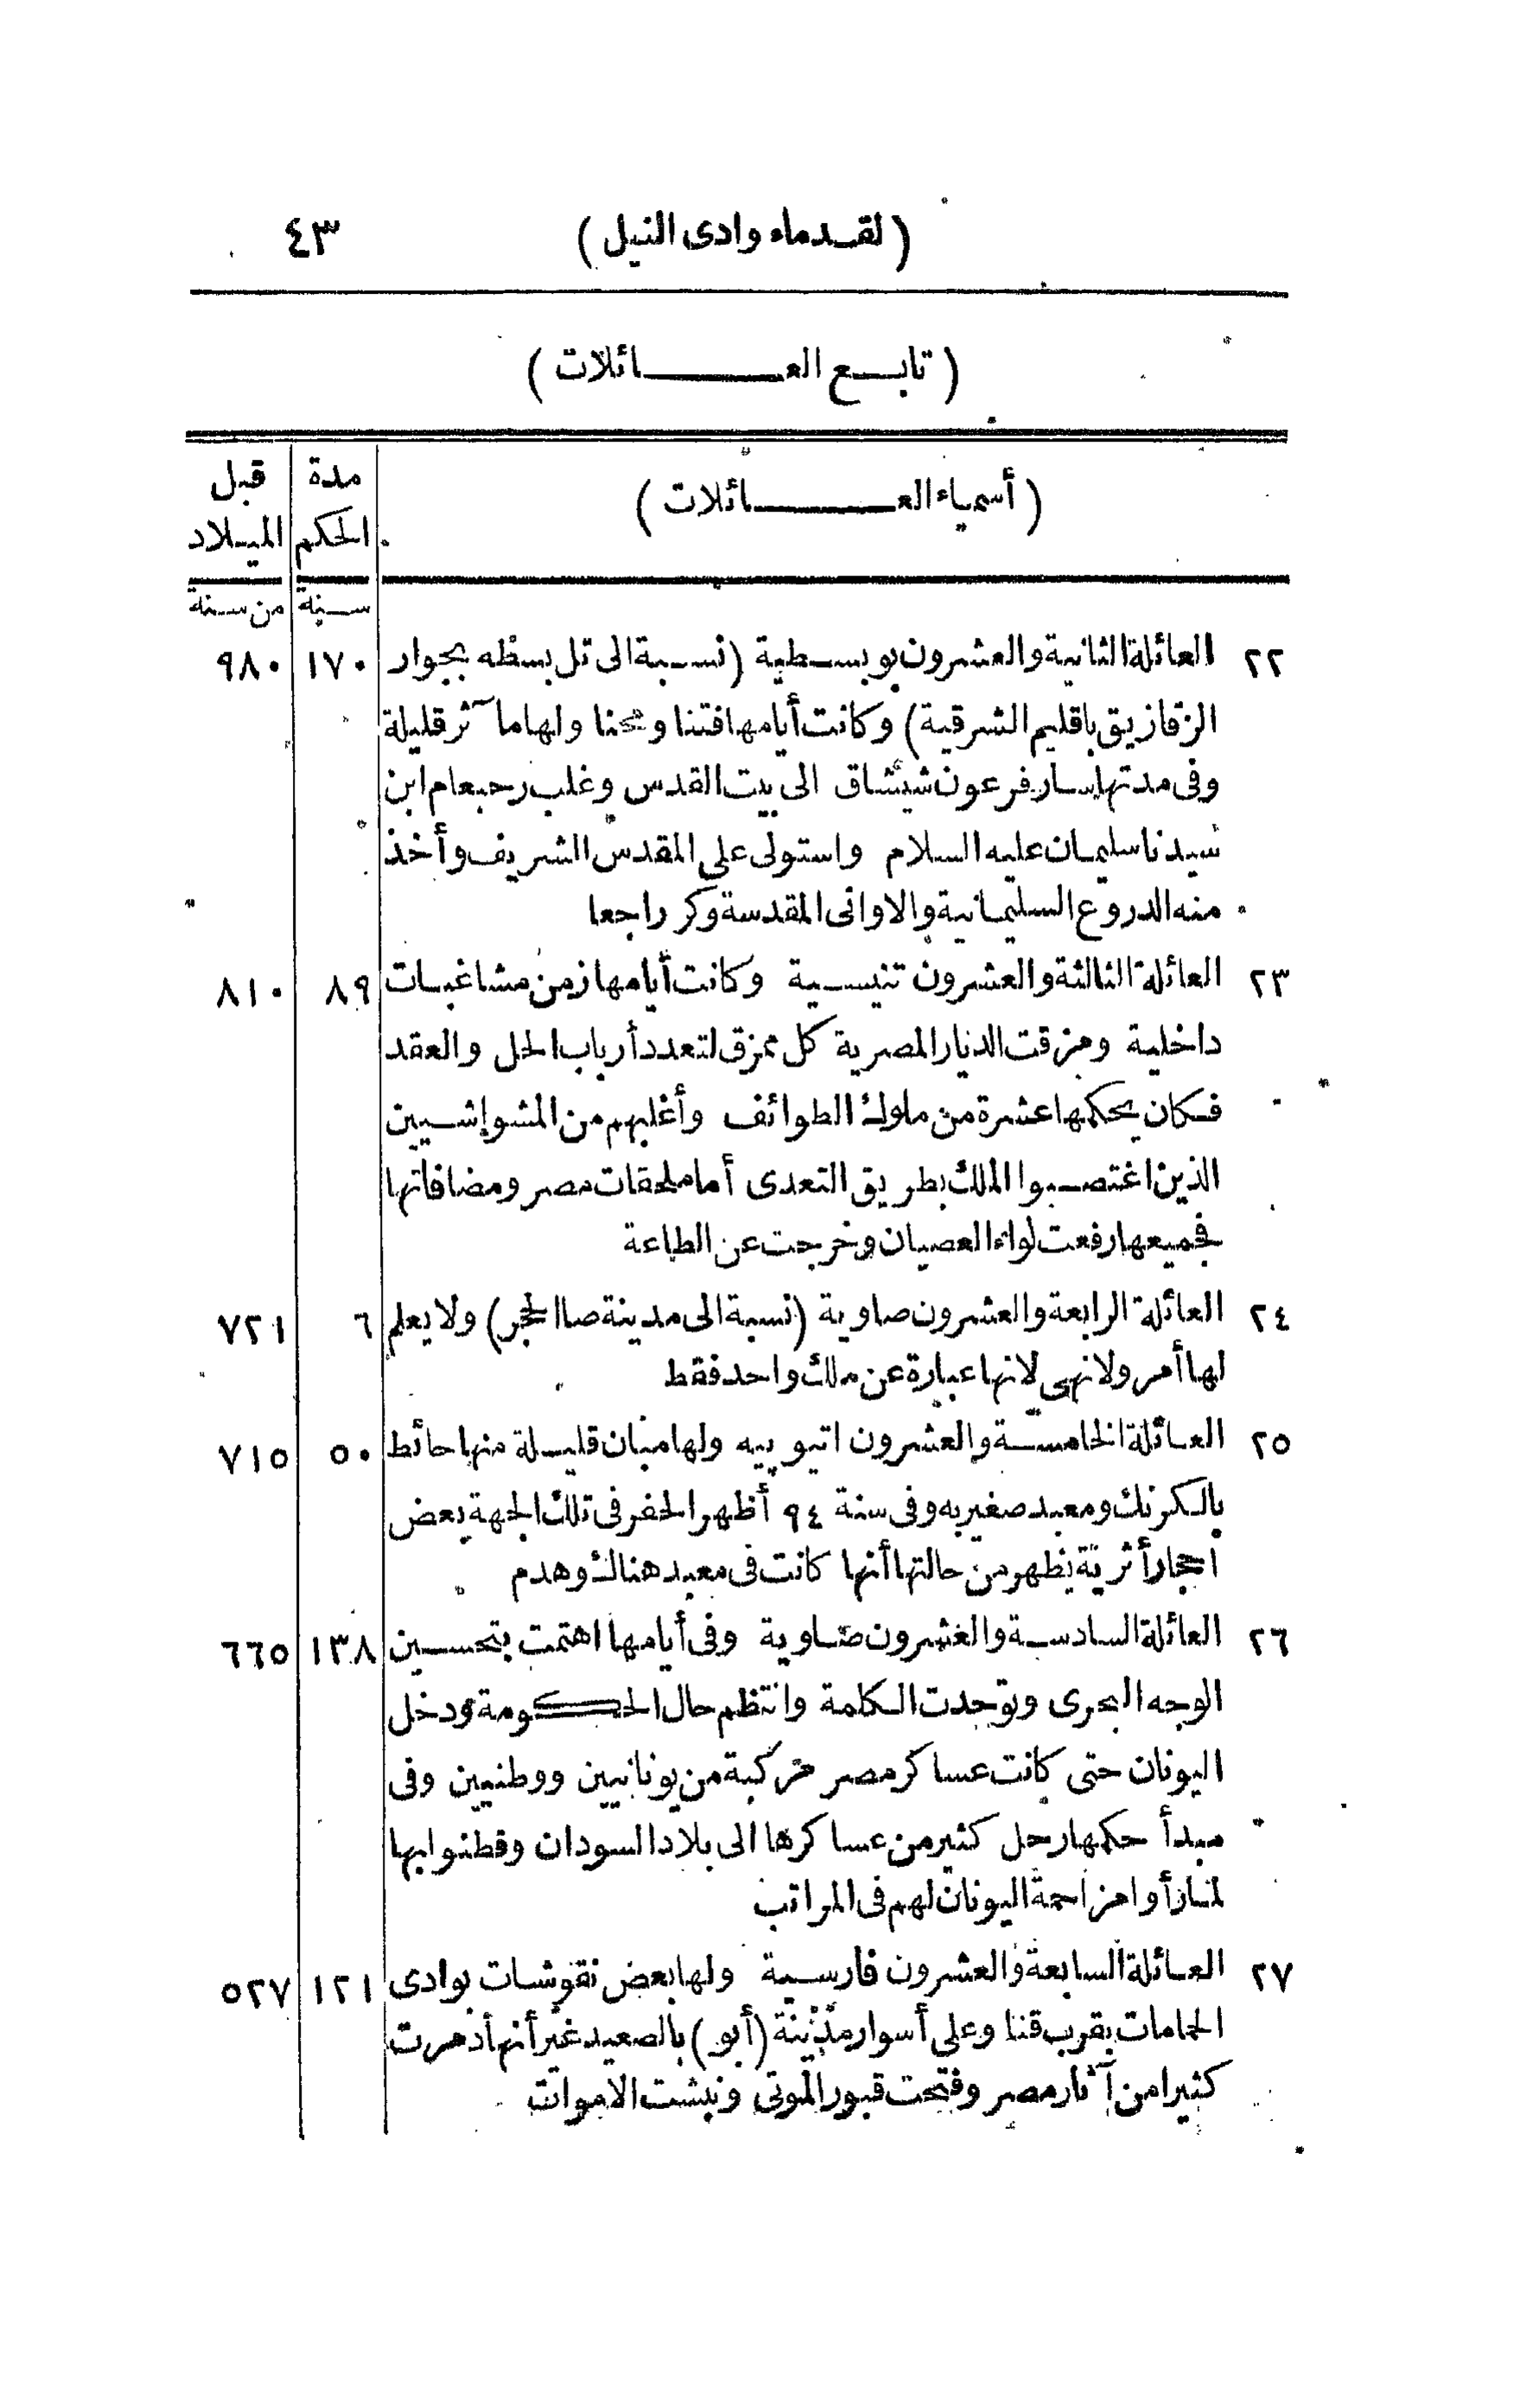 (لقدماء وادى النيل) ٤٣
(تابع العائلات)
(أسماء العائلات) مدة الحكم قبل الميلاد
سنة من سنة
٢٢ العائلة الثانية والعشرون بوبسطية (نسبة الى تل بسطه بجوار ١٧٠ ٩٨٠
الزقازيق باقليم الشرقية) وكانت أيامها فتنا ومحنا ولها مآثر قليلة
وفى مدتها سار فرعون شيشاق الى بيت القدس وغلب رحبعام ابن
سيدنا سليمان عليه السلام واستولى على المقدس الشريف وأخذ
منه الدروع السليمانية والاوانى المقدسة وكر راجعا
٢٣ العائلة الثالثة والعشرون تنيسية وكانت أيامها زمن مشاغبات ٨٩ ٨١٠
داخلية ومزقت الديار المصرية كل ممزق لتعدد أرباب الحل والعقد
فكان يحكمها عشرة من ملوك الطوائف وأغلبهم من المشواشيين
الذين اغتصبوا الملك بطريق التعدى أما ملحقات مصر ومضافاتها
فجميعها رفعت لواء العصيان وخرجت عن الطاعة
٢٤ العائلة الرابعة والعشرون صاوية (نسبة الى مدينة صا الحجر) ولا يعلم ٦ ٧٢١
لها أمر ولا نهى لانها عبارة عن ملك واحد فقط
٢٥ العائلة الخامسة والعشرون اتيوبيه ولها مبان قليلة منها حائط ٥٠ ٧١٥
بالكرنك ومعبد صغير به وفى سنة ٩٤ أظهر الحفر فى تلك الجهة بعض
احجار أثرية يظهر من حالتها أنها كانت فى معبد هناك وهدم
٢٦ العائلة السادسة والعشرون صاوية وفى أيامها اهتمت بتحسين ١٣٨ ٦٦٥
الوجه البحرى وتوحدت الكلمة وانتظم حال الحكومة ودخل
اليونان حتى كانت عساكر مصر مركبة من يونانيين ووطنيين وفى
مبدأ حكمها رحل كثير من عساكرها الى بلاد السودان وقطنوا بها
لما رأوا مزاحمة اليونان لهم فى المراتب
٢٧ العائلة السابعة والعشرون فارسية ولها بعض نقوشات بوادى ١٢١ ٥٢٧
الحمامات بقرب قنا وعلى أسوار مدينة (أبو) بالصعيد غير أنها دمرت
كثيرا من آثار مصر وفتحت قبور الموتى ونبشت الاموات